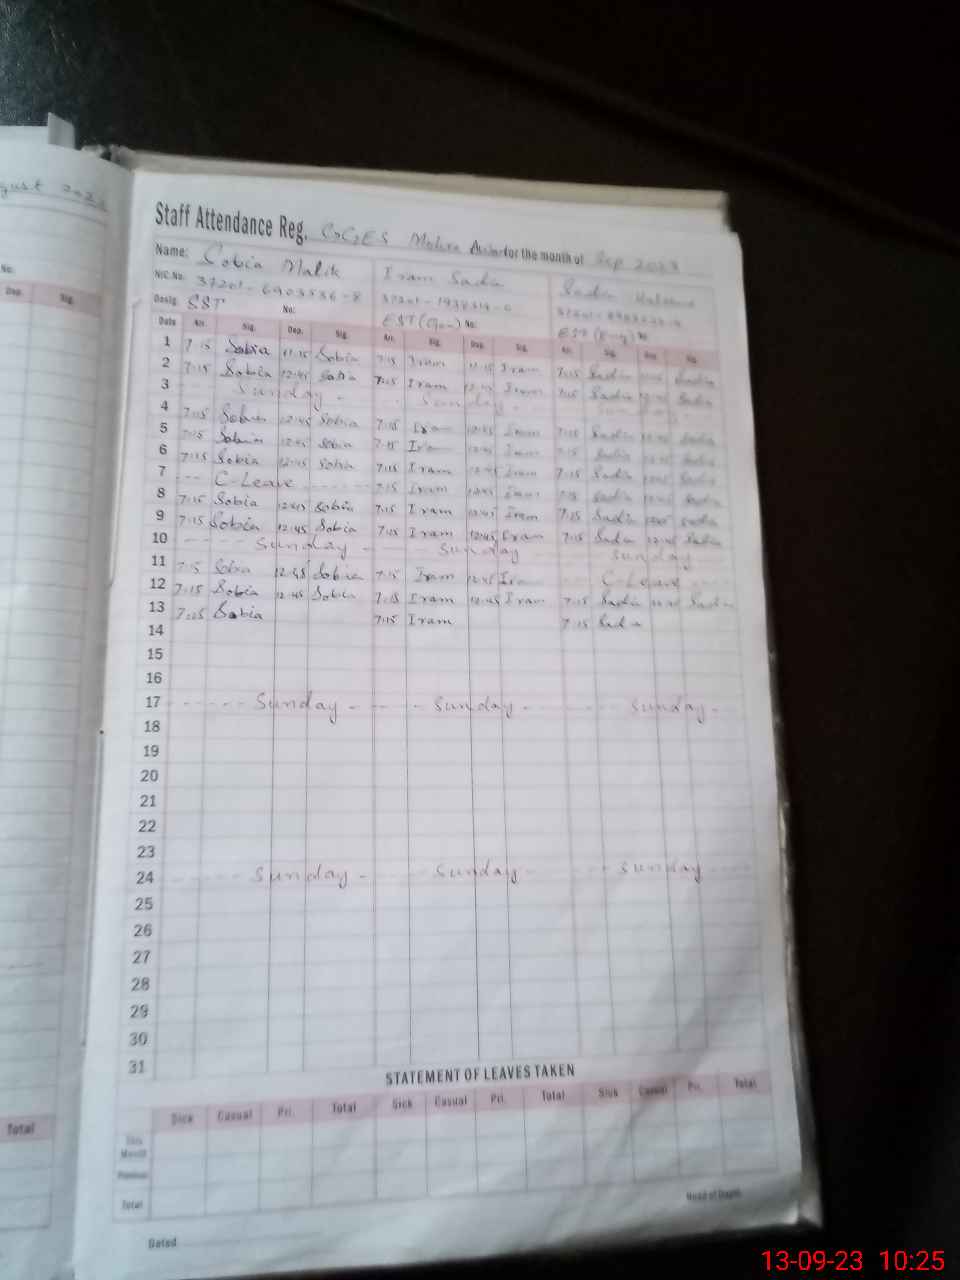 gust 202
No:
Dep. Sig.
Total
Staff Attendance Reg. GGES Mohra for the month of Sep 2023
Name: Sobia Malik Iram Sadia
NIC.No: 37201-6903536-8
Desig. SST No: EST (Gen) No: EST
Date Arr. Sig. Dep. Sig. Arr. Sig. Dep. Sig. Arr. Sig. Dep. Sig.
1 7:15 Sobia 11:15 Sobia 7:15 Iram 11:15 Iram 7:15 Sadia Sadia
2 7:15 Sobia 12:45 Sobia 7:15 Iram 12:45 Iram 7:15 Sadia Sadia
3 Sunday Sunday
4 7:15 Sobia 12:45 Sobia 7:15 Iram 12:45 Iram 7:15 Sadia Sadia
5 7:15 Sobia 12:45 Sobia 7:15 Iram 12:45 Iram 7:15 Sadia Sadia
6 7:15 Sobia 12:45 Sobia 7:15 Iram 12:45 Iram 7:15 Sadia Sadia
7 --- C-Leave ------- 7:15 Iram 12:45 Iram 7:15 Sadia Sadia
8 7:15 Sobia 12:45 Sobia 7:15 Iram 12:45 Iram 7:15 Sadia Sadia
9 7:15 Sobia 12:45 Sobia 7:15 Iram 12:45 Iram 7:15 Sadia 12:45 Sadia
10 ----- Sunday ----- Sunday ----- Sunday
11 7:15 Sobia 12:45 Sobia 7:15 Iram 12:45 Iram --- C-Leave ---
12 7:15 Sobia 12:45 Sobia 7:15 Iram 12:45 Iram 7:15 Sadia Sadia
13 7:15 Sobia 7:15 Iram 7:15 Sadia
14
15
16
17 ------ Sunday ---- Sunday ----- Sunday -
18
19
20
21
22
23
24 ------ Sunday ---- Sunday ---- Sunday ----
25
26
27
28
29
30
31
STATEMENT OF LEAVES TAKEN
Sick Casual Pri. Total Sick Casual Pri. Total Sick Casual Pri. Total
This Month
Previous
Total
Head of Deptt.
Dated
13-09-23 10:25